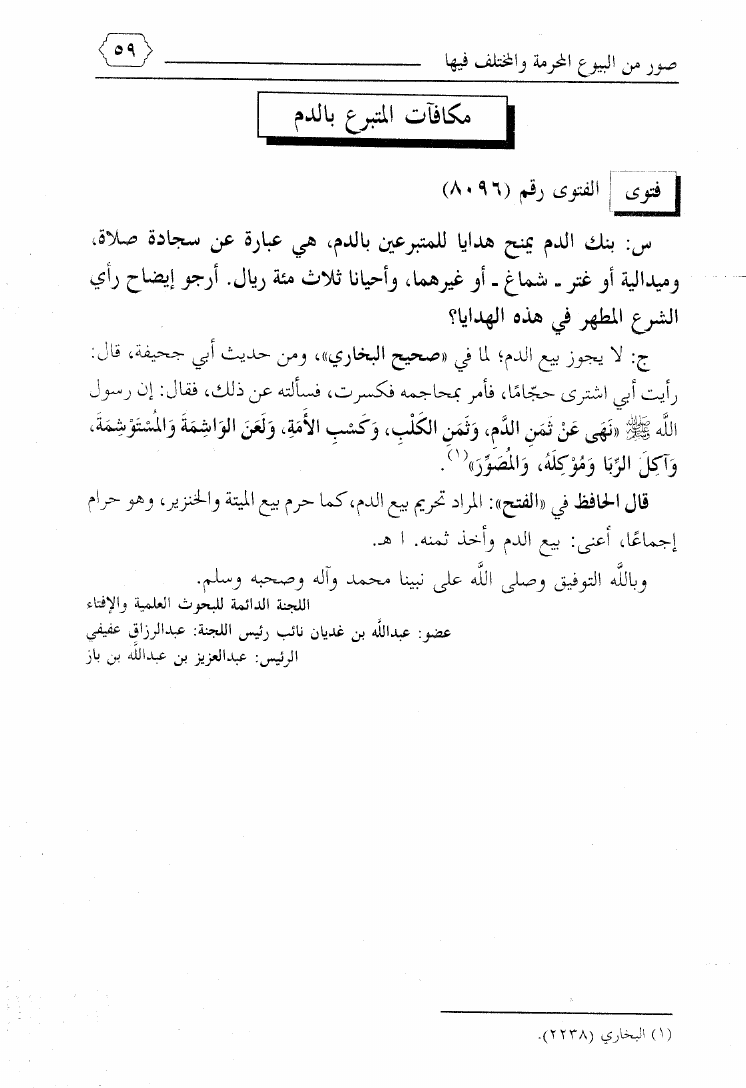 صور من البيوع المحرمة والمختلف فيها ٥٩
مكافآت المتبرع بالدم
فتوى الفتوى رقم (٨٠٩٦)
س: بنك الدم يمنح هدايا للمتبرعين بالدم، هي عبارة عن سجادة صلاة،
وميدالية أو غتر ـ شماغ ـ أو غيرهما، وأحيانا ثلاث مئة ريال. أرجو إيضاح رأي
الشرع المطهر في هذه الهدايا؟
ج: لا يجوز بيع الدم؛ لما في «صحيح البخاري»، ومن حديث أبي جحيفة، قال:
رأيت أبي اشترى حجّامًا، فأمر بمحاجمه فكسرت، فسألته عن ذلك، فقال: إن رسول
اللَّه ﷺ «نَهَى عَنْ ثَمَنِ الدَّمِ، وَثَمَنِ الكَلْبِ، وَكَسْبِ الأَمَةِ، وَلَعَنَ الوَاشِمَةَ وَالمُسْتَوْشِمَةَ،
وَآكِلَ الرِّبَا وَمُوْكِلَهُ، وَالمُصَوِّرَ»(١).
قال الحافظ في «الفتح»: المراد تحريم بيع الدم، كما حرم بيع الميتة والخنزير، وهو حرام
إجماعًا، أعني: بيع الدم وأخذ ثمنه. ا هـ.
وباللَّه التوفيق وصلى اللَّه على نبينا محمد وآله وصحبه وسلم.
اللجنة الدائمة للبحوث العلمية والإفتاء
عضو: عبداللَّه بن غديان نائب رئيس اللجنة: عبدالرزاق عفيفي
الرئيس: عبدالعزيز بن عبداللَّه بن باز
(١) البخاري (٢٢٣٨).